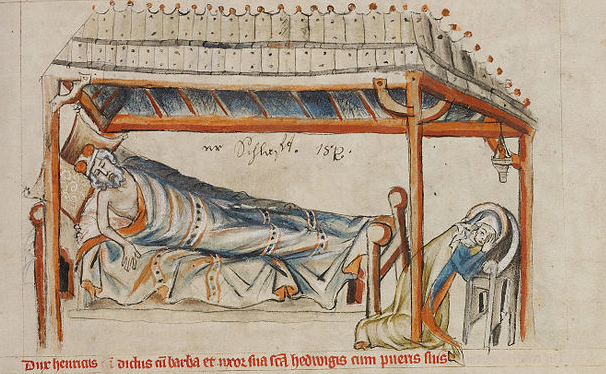 er Schlafft.
Dux henricus dictus cū barba et uxor sua scā hedwigis cum pueris suis